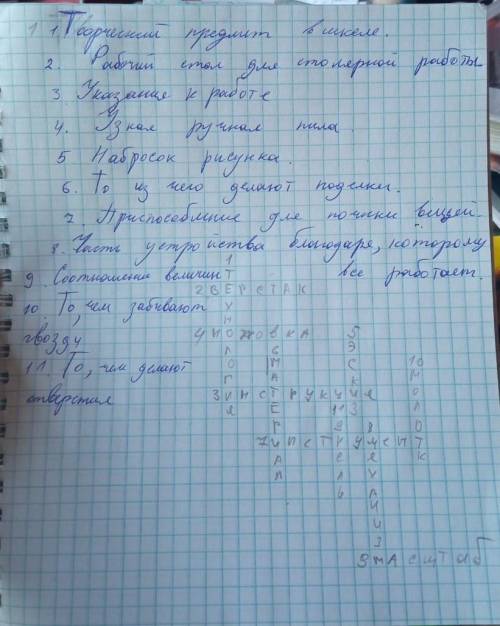 1 1. Творческий предмит в школе.
2. Рабочий стол для столярной работы
3 Указание к работе
4. Узкая ручная пила.
5 Набросок рисунка.
6. То из чего делают поделки.
7. Приспособление для починки вещей.
8. Часть устройства благодаря, которому
все работает.
9. Соотношение величин
10. То, чем забивают
гвозду
11. То, чем делают
отверстия
1 ТЕХНОЛОГИЯ
2 ВЕРСТАК
4 НОЖОВКА
5 ЭСКИЗ
6 МАТЕРИАЛ
10 МОЛОТОК
3 ИНСТРУКЦИЯ
7 ИНСТРУМЕНТ
9 МАСШТАБ